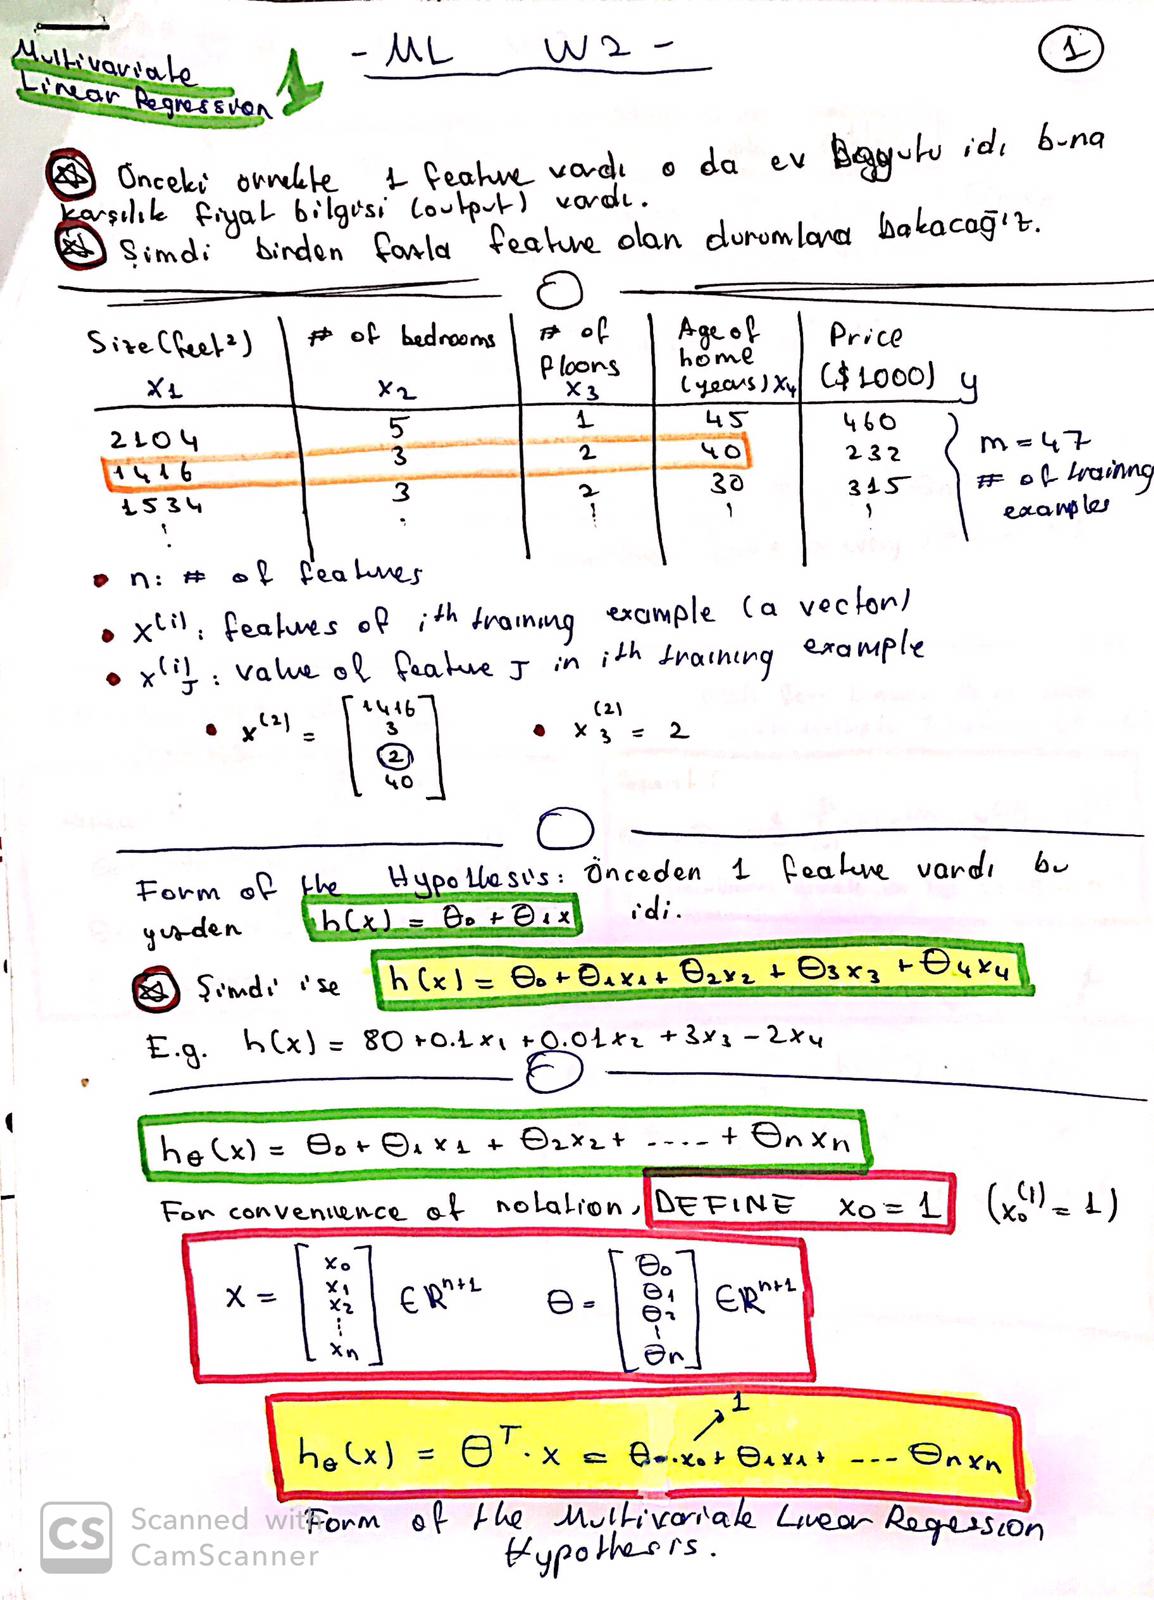 Multivariate
Linear Regression 1
- ML W2 -
1
Önceki örnekte 1 feature vardı o da ev büyüklüğü idi buna
karşılık fiyat bilgisi (output) vardı.
Şimdi birden fazla feature olan durumlara bakacağız.
Size (feet²) | # of bedrooms | # of floors | Age of home (years) | Price ($1000)
x1 | x2 | x3 | x4 | y
2104 | 5 | 1 | 45 | 460
1416 | 3 | 2 | 40 | 232
1534 | 3 | 2 | 30 | 315
m = 47
# of training
examples
• n: # of features
• x^(i): features of i^th training example (a vector)
• x^(i)_J: value of feature J in i^th training example
• x^(2) = [1416 3 2 40]
• x_3^(2) = 2
Form of the Hypothesis: Önceden 1 feature vardı bu
yüzden h(x) = θ0 + θ1x idi.
Şimdi ise h(x) = θ0 + θ1x1 + θ2x2 + θ3x3 + θ4x4
E.g. h(x) = 80 + 0.1x1 + 0.01x2 + 3x3 - 2x4
hθ(x) = θ0 + θ1x1 + θ2x2 + ..... + θnxn
For convenience of notation, DEFINE x0 = 1 (x0^(i) = 1)
x = [x0 x1 x2 ⋮ xn] ∈ R^n+1 θ = [θ0 θ1 θ2 ⋮ θn] ∈ R^n+1
1
hθ(x) = θ^T . x = θ0.x0 + θ1x1 + --- θnxn
Form of the Multivariate Linear Regression
Hypothesis.
CS Scanned with
CamScanner